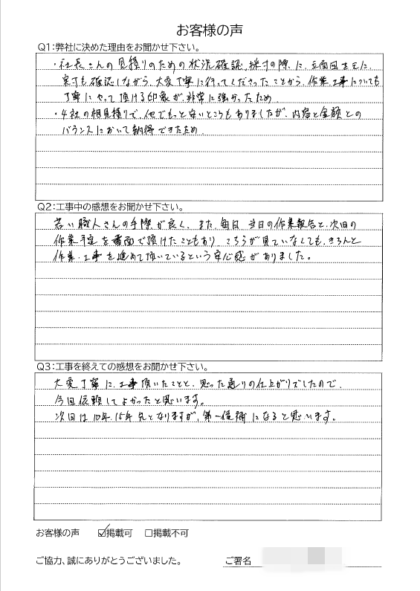 お客様の声
Q1:弊社に決めた理由をお聞かせ下さい。
・社長さんの見積りのための状況確認、採寸の際に、立面図を元に
実寸も確認しながら、大変丁寧に行ってくださったことから、作業、工事についても
丁寧にやって頂ける印象が非常に強かったため
・4社の相見積りで、他でもっと安いところもありましたが、内容と金額との
バランスにおいて納得できたため
Q2:工事中の感想をお聞かせ下さい。
若い職人さんの手際が良く、また、毎日、当日の作業報告と、次回の
作業予定を書面で頂けたこともあり、こちらが見ていなくても、きちんと
作業・工事を進めて頂いているという安心感がありました。
Q3:工事を終えての感想をお聞かせ下さい。
大変丁寧に工事頂いたことと、思った通りの仕上がりでしたので、
今回依頼してよかったと思います。
次回は10年、15年先となりますが、第一候補になると思います。
お客様の声 ☑掲載可 □掲載不可
ご協力、誠にありがとうございました。 ご署名